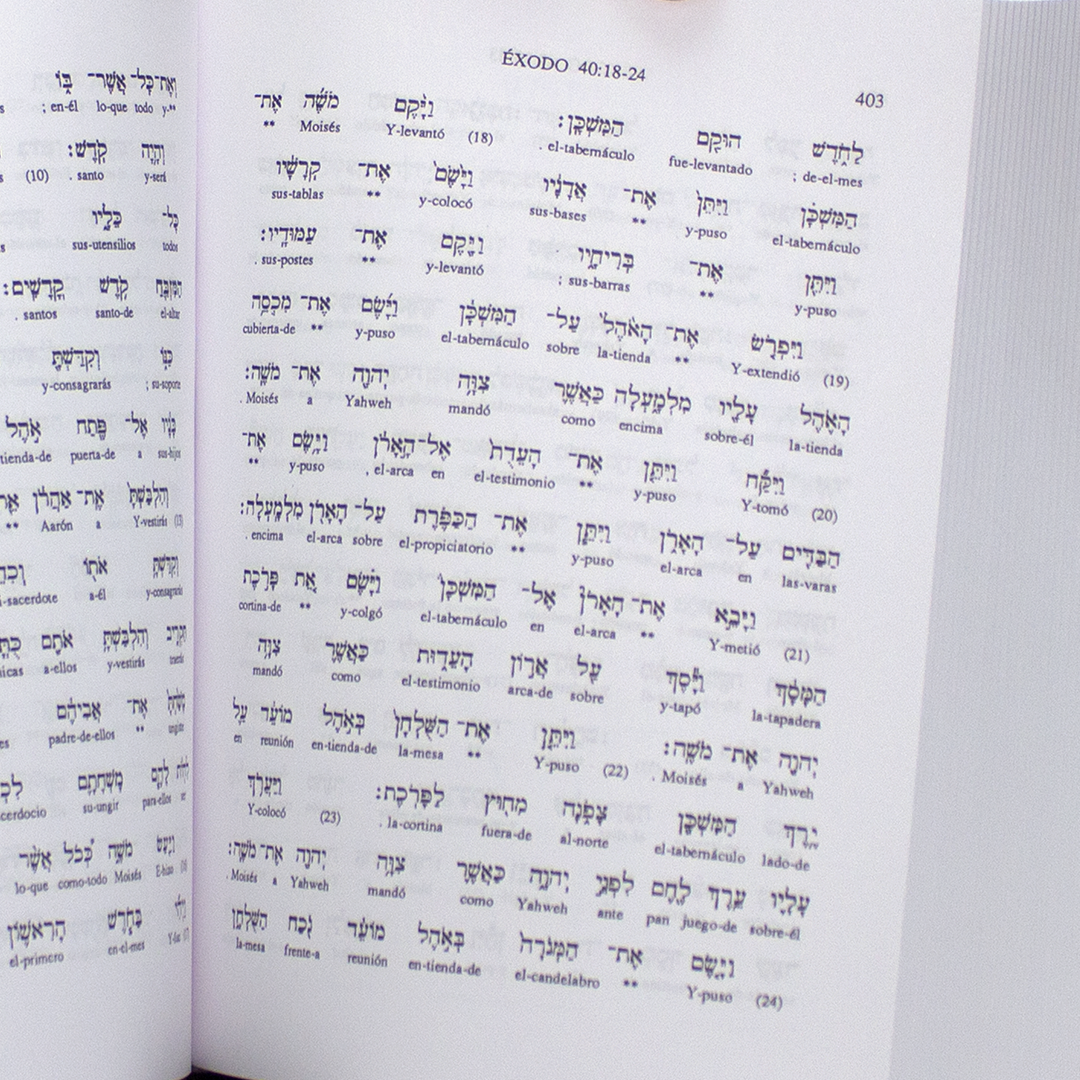 וְאֶת־כָּל־ אֲשֶׁר־ בּוֹ
; en-él lo-que todo y-**
וְהָיָה קֹדֶשׁ׃
(10) . santo y-será
כָּל־ כֵּלָיו
sus-utensilios todos
הַמִּזְבֵּחַ קֹדֶשׁ קָדָשִׁים׃
. santos santo-de el-altar
כַּנּוֹ וְקִדַּשְׁתָּ
y-consagrarás ; su-soporte
בָּנָיו אֶל־ פֶּתַח אֹהֶל
tienda-de puerta-de a sus-hijos
וְהִלְבַּשְׁתָּ אֶת־ אַהֲרֹן
** Aarón a Y-vestirás (13)
וְקִדַּשְׁתָּ אֹתוֹ
a-él y-consagrarás
וְהִלְבַּשְׁתָּ אֹתָם
a-ellos y-vestirás
אֶת־ אֲבִיהֶם
padre-de-ellos **
לָהֶם מָשְׁחָתָם
su-ungir para-ellos
וַיַּעַשׂ מֹשֶׁה כְּכֹל אֲשֶׁר
lo-que como-todo Moisés E-hizo
בַּחֹדֶשׁ הָרִאשׁוֹן
el-primero en-el-mes
ÉXODO 40:18-24
403
לַחֹדֶשׁ הוּקַם הַמִּשְׁכָּן׃ וַיָּקֶם מֹשֶׁה אֶת־
** Moisés Y-levantó (18) . el-tabernáculo fue-levantado ; de-el-mes
הַמִּשְׁכָּן וַיִּתֵּן אֶת־ אֲדָנָיו וַיָּשֶׂם אֶת־ קְרָשָׁיו
sus-tablas ** y-colocó sus-bases ** y-puso el-tabernáculo
וַיִּתֵּן אֶת־ בְּרִיחָיו וַיָּקֶם אֶת־ עַמּוּדָיו׃
. sus-postes ** y-levantó ; sus-barras ** y-puso
וַיִּפְרֹשׂ אֶת־ הָאֹהֶל עַל־ הַמִּשְׁכָּן וַיָּשֶׂם אֶת־ מִכְסֵה
cubierta-de ** y-puso el-tabernáculo sobre la-tienda ** Y-extendió (19)
הָאֹהֶל עָלָיו מִלְמָעְלָה כַּאֲשֶׁר צִוָּה יְהוָה אֶת־ מֹשֶׁה׃
. Moisés a Yahweh mandó como encima sobre-él la-tienda
וַיִּקַּח וַיִּתֵּן אֶת־ הָעֵדֻת אֶל־הָאָרֹן וַיָּשֶׂם אֶת־
** y-puso , el-arca en el-testimonio ** y-puso Y-tomó (20)
הַבַּדִּים עַל־ הָאָרֹן וַיִּתֵּן אֶת־ הַכַּפֹּרֶת עַל־ הָאָרֹן מִלְמָעְלָה׃
. encima el-arca sobre el-propiciatorio ** y-puso el-arca en las-varas
וַיָּבֵא אֶת־ הָאָרֹן אֶל־ הַמִּשְׁכָּן וַיָּשֶׂם אֵת פָּרֹכֶת
cortina-de ** y-colgó el-tabernáculo en el-arca ** Y-metió (21)
הַמָּסָךְ וַיָּסֶךְ עַל אֲרוֹן הָעֵדוּת כַּאֲשֶׁר צִוָּה
mandó como el-testimonio arca-de sobre y-tapó la-tapadera
יְהוָה אֶת־ מֹשֶׁה׃ וַיִּתֵּן אֶת־ הַשֻּׁלְחָן בְּאֹהֶל מוֹעֵד עַל
en reunión en-tienda-de la-mesa ** Y-puso (22) . Moisés a Yahweh
יֶרֶךְ הַמִּשְׁכָּן צָפֹנָה מִחוּץ לַפָּרֹכֶת׃ וַיַּעֲרֹךְ
Y-colocó (23) . la-cortina fuera-de al-norte el-tabernáculo lado-de
עָלָיו עֵרֶךְ לֶחֶם לִפְנֵי יְהוָה כַּאֲשֶׁר צִוָּה יְהוָה אֶת־ מֹשֶׁה׃
. Moisés a Yahweh mandó como Yahweh ante pan juego-de sobre-él
וַיָּשֶׂם אֶת־ הַמְּנֹרָה בְּאֹהֶל מוֹעֵד נֹכַח הַשֻּׁלְחָן
la-mesa frente-a reunión en-tienda-de el-candelabro ** Y-puso (24)